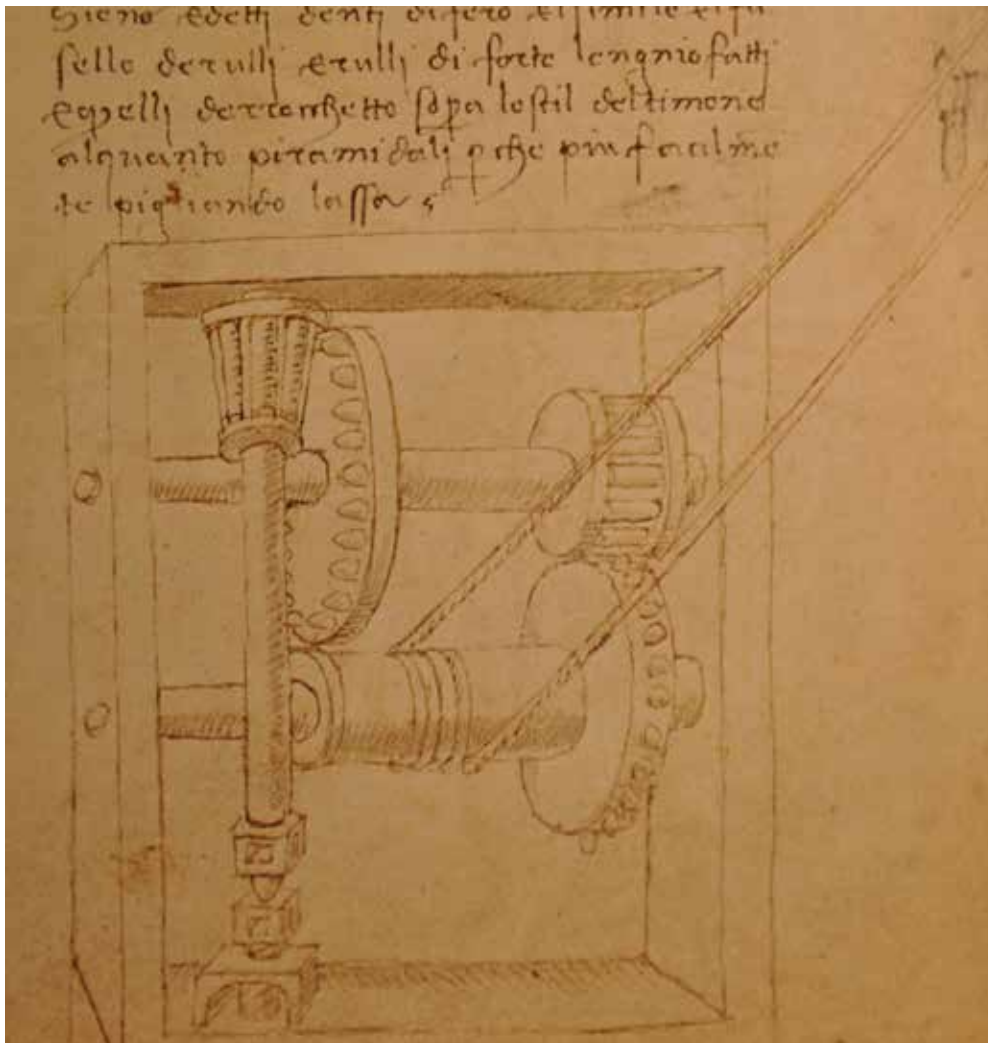 Sieno edetti denti difero elsimile elfu
sello derulli erulli di forte lengnio fatti
eqvelli derrocchetto sopa lostil deltimone
alquanto piramidali p che piu facilme
te pigliando lassa